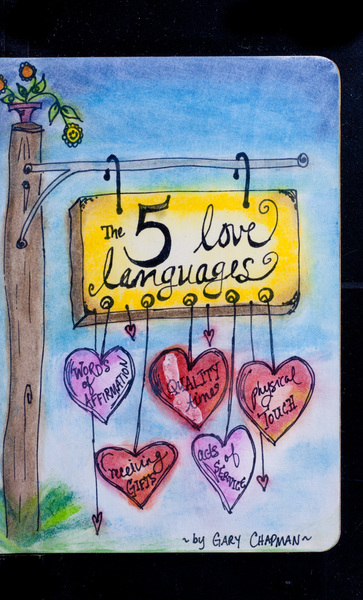 The 5 love
languages
WORDS
of
AFFIRMATION
QUALITY
time
physical
TOUCH
receiving
GIFTS
acts of
SERVICE
~by GARY CHAPMAN~